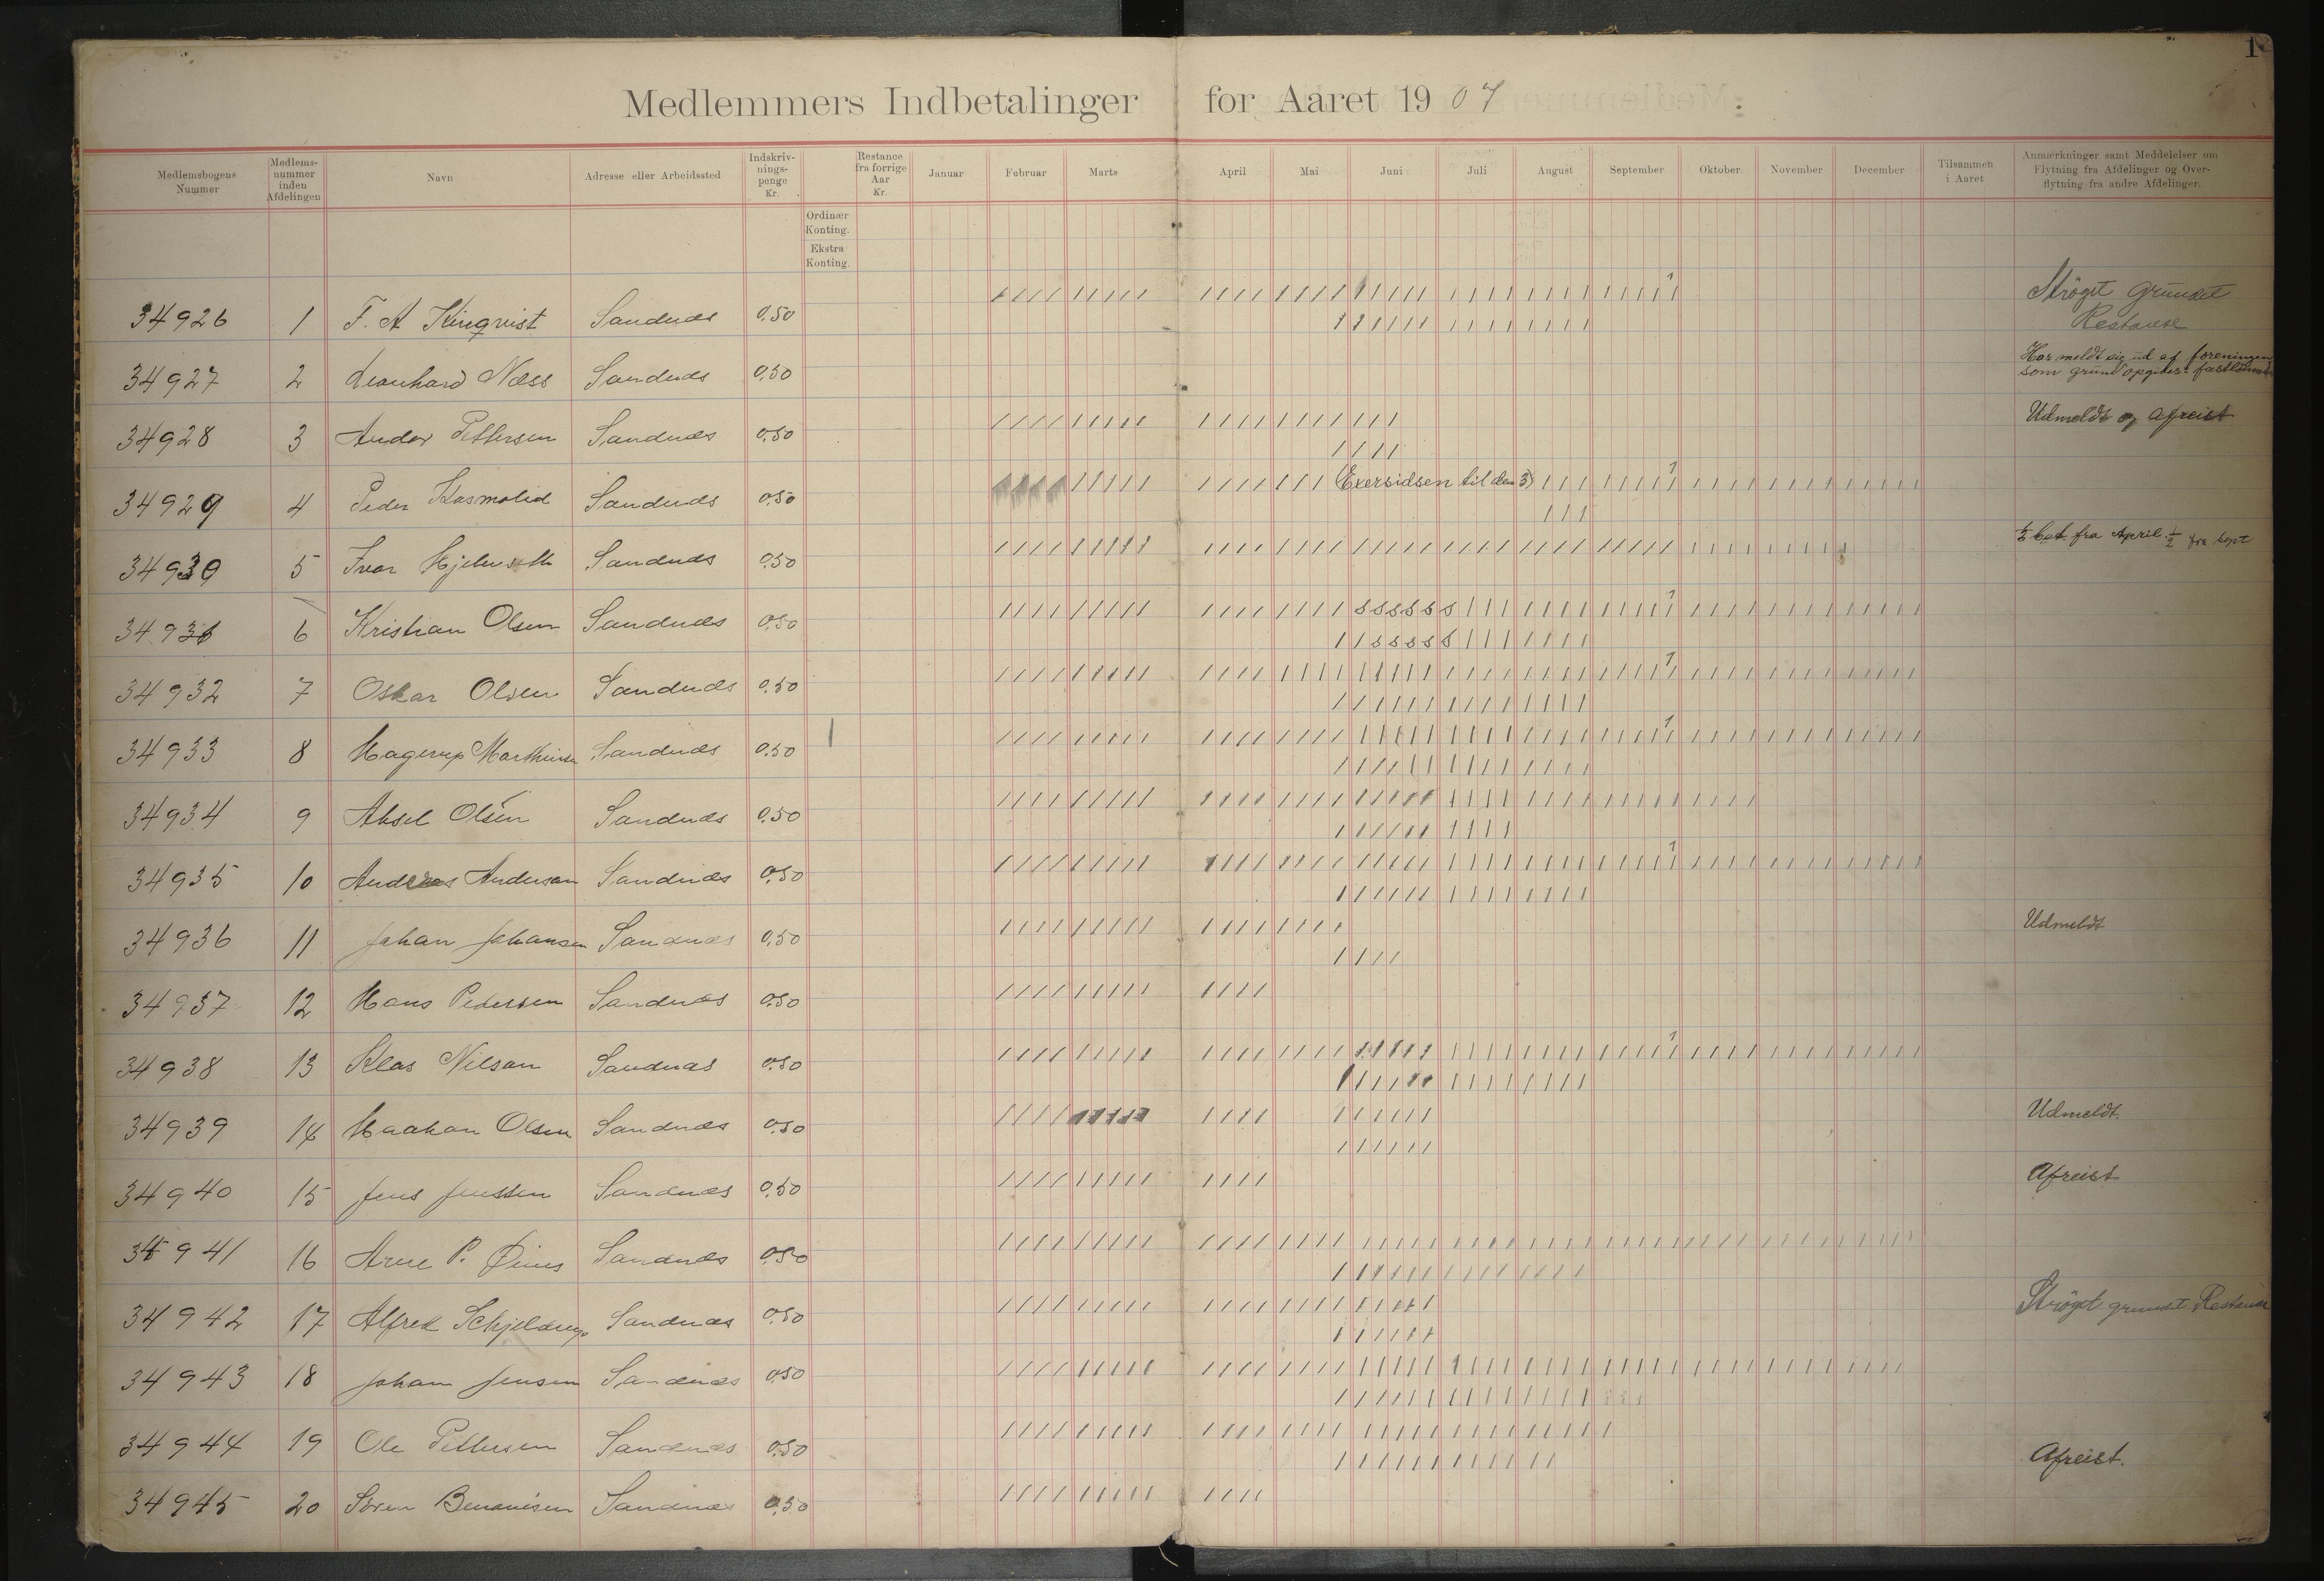 1
Medlemmers Indbetalinger for Aaret 1907
Medlemsbogens Nummer
Medlems-nummer inden Afdelingen
Navn
Adresse eller Arbeidssted
Indskriv-nings-penge Kr.
Restance fra forrige Aar Kr.
Januar
Februar
Marts
April
Mai
Juni
Juli
August
September
Oktober
November
December
Tilsammen i Aaret
Anmærkninger samt Meddelelser om
Flytning fra Afdelinger og Over-
flytning fra andre Afdelinger.
Ordinær Konting.
Ekstra Konting.
34926 1 F. A Sandnæs 0.50 Strøget grundet
Restanse
34927 2 Leonhard Næss Sandnæs 0.50 Har meldt sig ud af foreningen
som grund opgives
34928 3 Andor Pettersen Sandnæs 0.50 Udmeldt og afreist
34929 4 Peder Sandnæs 0.50 (Exersidsen til den 3)
34930 5 Ivar Sandnæs 0.50 ½ bet fra April. ½ fra Sept
34931 6 Kristian Olsen Sandnæs 0.50 s s s s s s
s s s s s
34932 7 Oskar Olsen Sandnæs 0.50
34933 8 Hagerup Sandnæs 0.50
34934 9 Aksel Olsen Sandnæs 0.50
34935 10 Andreas Anderson Sandnæs 0.50
34936 11 Johan Johansen Sandnæs 0.50 Udmeldt
34937 12 Hans Pedersen Sandnæs 0.50
34938 13 Klas Nilsan Sandnæs 0.50
34939 14 Haakon Olsen Sandnæs 0.50 Udmeldt.
34940 15 Jens Jenssen Sandnæs 0.50 Afreist
34941 16 Arne P. Sandnæs 0.50
34942 17 Alfred Schjelderup Sandnæs 0.50 Strøget grundet Restanse
34943 18 Johan Jensen Sandnæs 0.50
34944 19 Ole Pettersen Sandnæs 0.50 Afreist.
34945 20 Sandnæs 0.50